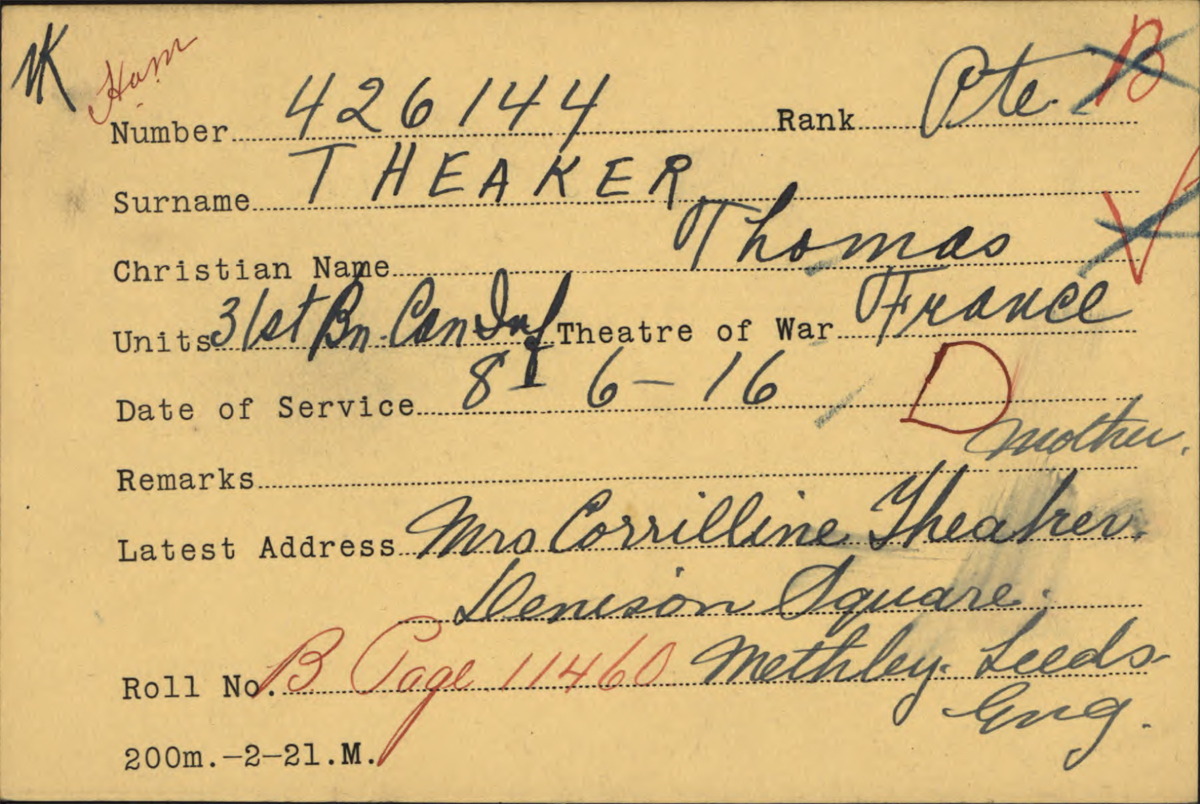 Ham
Number 426144 Rank Pte. B
Surname THEAKER
Christian Name Thomas V
Units 31st Bn. Can Inf Theatre of War France
Date of Service 8-6-16 D
Mother.
Remarks
Latest Address Mrs Corrilline Theaker.
Denison Square.
Roll No. B Page 11460 Methley. Leeds
Eng.
200m.-2-21.M.